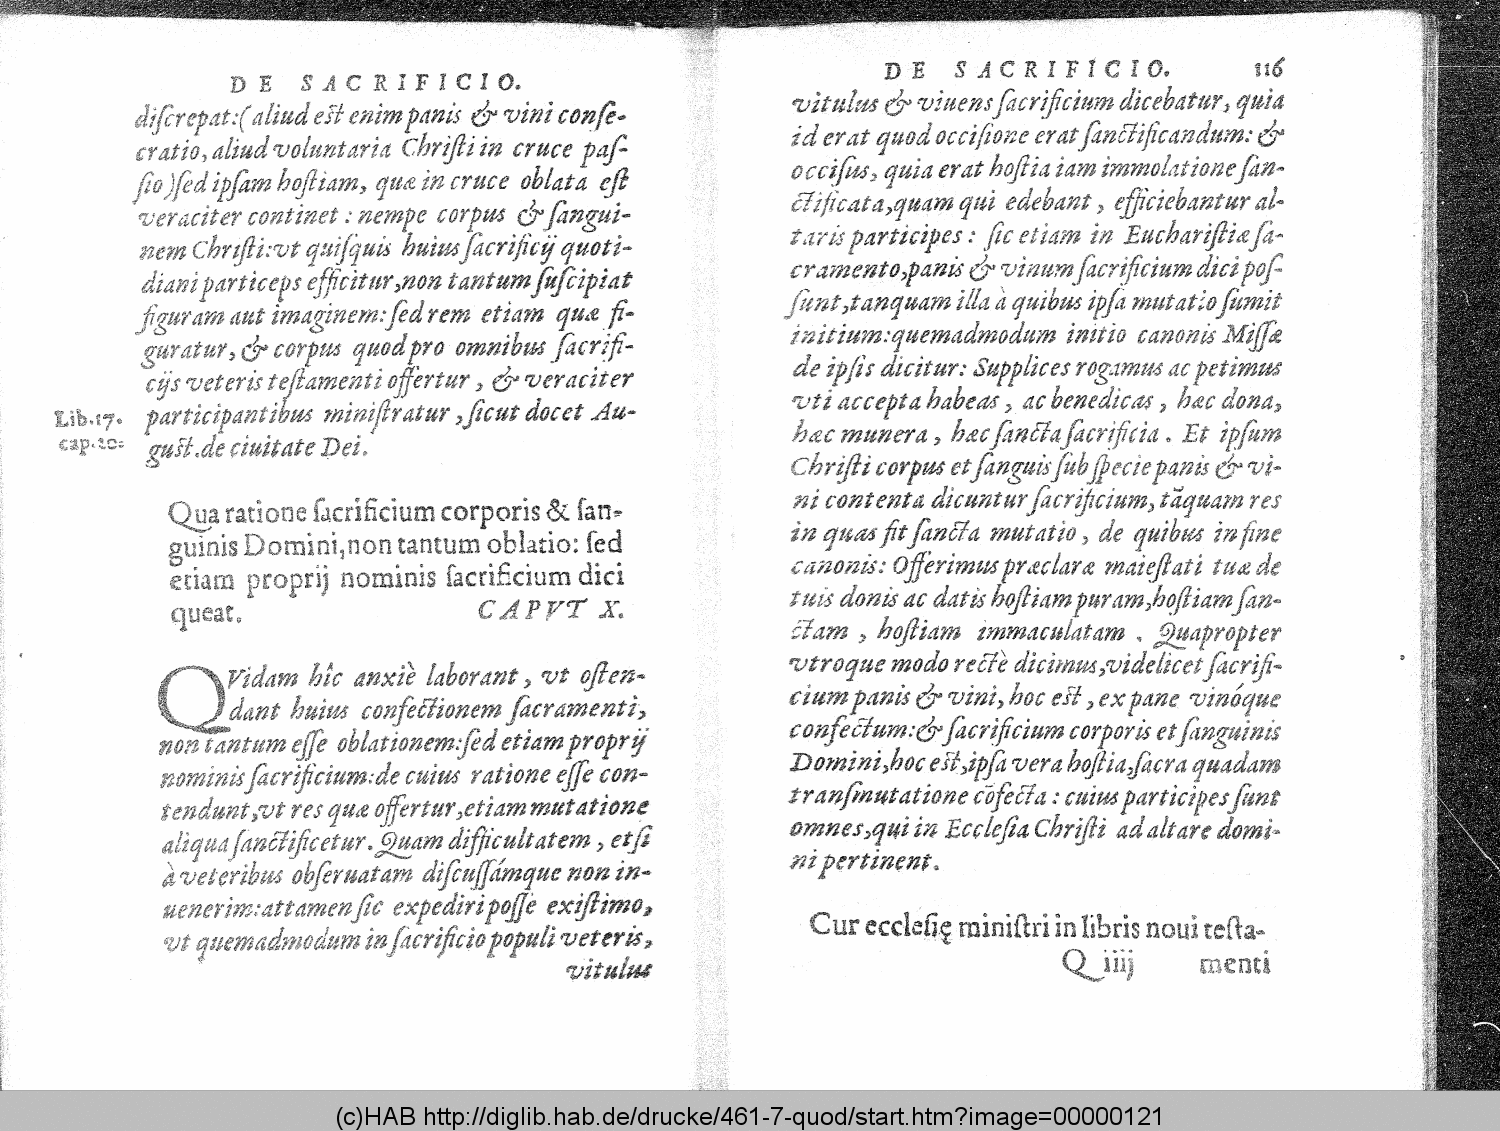 DE SACRIFICIO.
discrepat:( aliud est enim panis & vini conse-
cratio, aliud voluntaria Christi in cruce pas-
sio )sed ipsam hostiam, quæ in cruce oblata est
veraciter continet : nempe corpus & sangui-
nem Christi:vt quisquis huius sacrificij quoti-
diani particeps efficitur,non tantum suscipiat
figuram aut imaginem:sed rem etiam quæ fi-
guratur, & corpus quod pro omnibus sacrifi-
cijs veteris testamenti offertur , & veraciter
Lib.17. participantibus ministratur ,sicut docet Au-
cap.20: gust.de ciuitate Dei.
Qua ratione sacrificium corporis & san-
guinis Domini,non tantum oblatio: sed
etiam proprij nominis sacrificium dici
queat. CAPVT X.
QVidam hîc anxiè laborant , vt osten-
dant huius confectionem sacramenti,
non tantum esse oblationem:sed etiam proprij
nominis sacrificium:de cuius ratione esse con-
tendunt,vt res quæ offertur,etiam mutatione
aliqua sanctificetur. Quam difficultatem , etsi
à veteribus obseruatam discussámque non in-
uenerim:attamen sic expediri posse existimo,
vt quemadmodum in sacrificio populi veteris,
vitulus
DE SACRIFICIO. 116
vitulus & viuens sacrificium dicebatur, quia
id erat quod occisione erat sanctificandum: &
occisus, quia erat hostia iam immolatione san-
ctificata,quam qui edebant , efficiebantur al-
taris participes : sic etiam in Eucharistiæ sa-
cramento,panis & vinum sacrificium dici pos-
sunt,tanquam illa à quibus ipsa mutatio sumit
initium:quemadmodum initio canonis Missæ
de ipsis dicitur: Supplices rogamus ac petimus
vti accepta habeas , ac benedicas , hæc dona,
hæc munera , hæc sancta sacrificia . Et ipsum
Christi corpus et sanguis sub specie panis & vi-
ni contenta dicuntur sacrificium, tãquam res
in quas fit sancta mutatio , de quibus in fine
canonis: Offerimus præclaræ maiestati tuæ de
tuis donis ac datis hostiam puram,hostiam san-
ctam , hostiam immaculatam . Quapropter
vtroque modo rectè dicimus,videlicet sacrifi-
cium panis & vini, hoc est , ex pane vinóque
confectum:& sacrificium corporis et sanguinis
Domini,hoc est,ipsa vera hostia,sacra quadam
transmutatione cõfecta : cuius participes sunt
omnes,qui in Ecclesia Christi ad altare domi-
ni pertinent.
Cur ecclesię ministri in libris noui testa-
Q iiij menti
(c)HAB http://diglib.hab.de/drucke/461-7-quod/start.htm?image=00000121